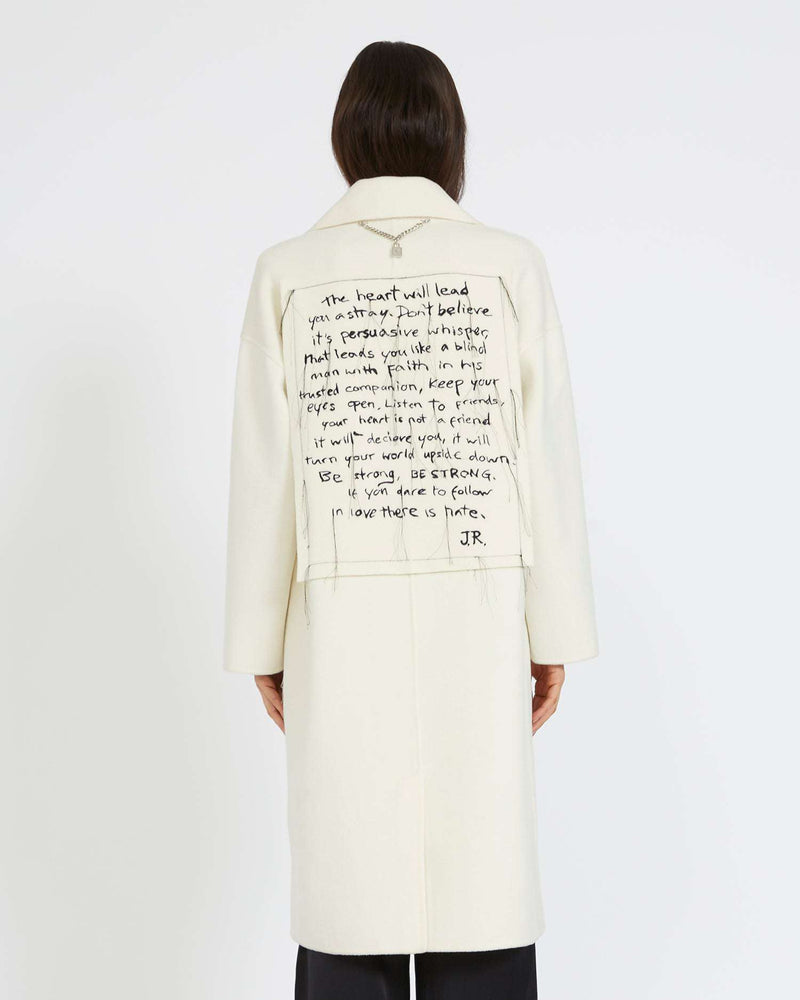 the heart will lead
you astray. Don't believe
it's persuasive whisper,
that leads you like a blind
man with faith in his
trusted companion, keep your
eyes open, Listen to friends,
your heart is not a friend
it will decieve you, it will
turn your world upside down.
Be strong, BE STRONG.
If you dare to follow
in love there is hate.
J.R.